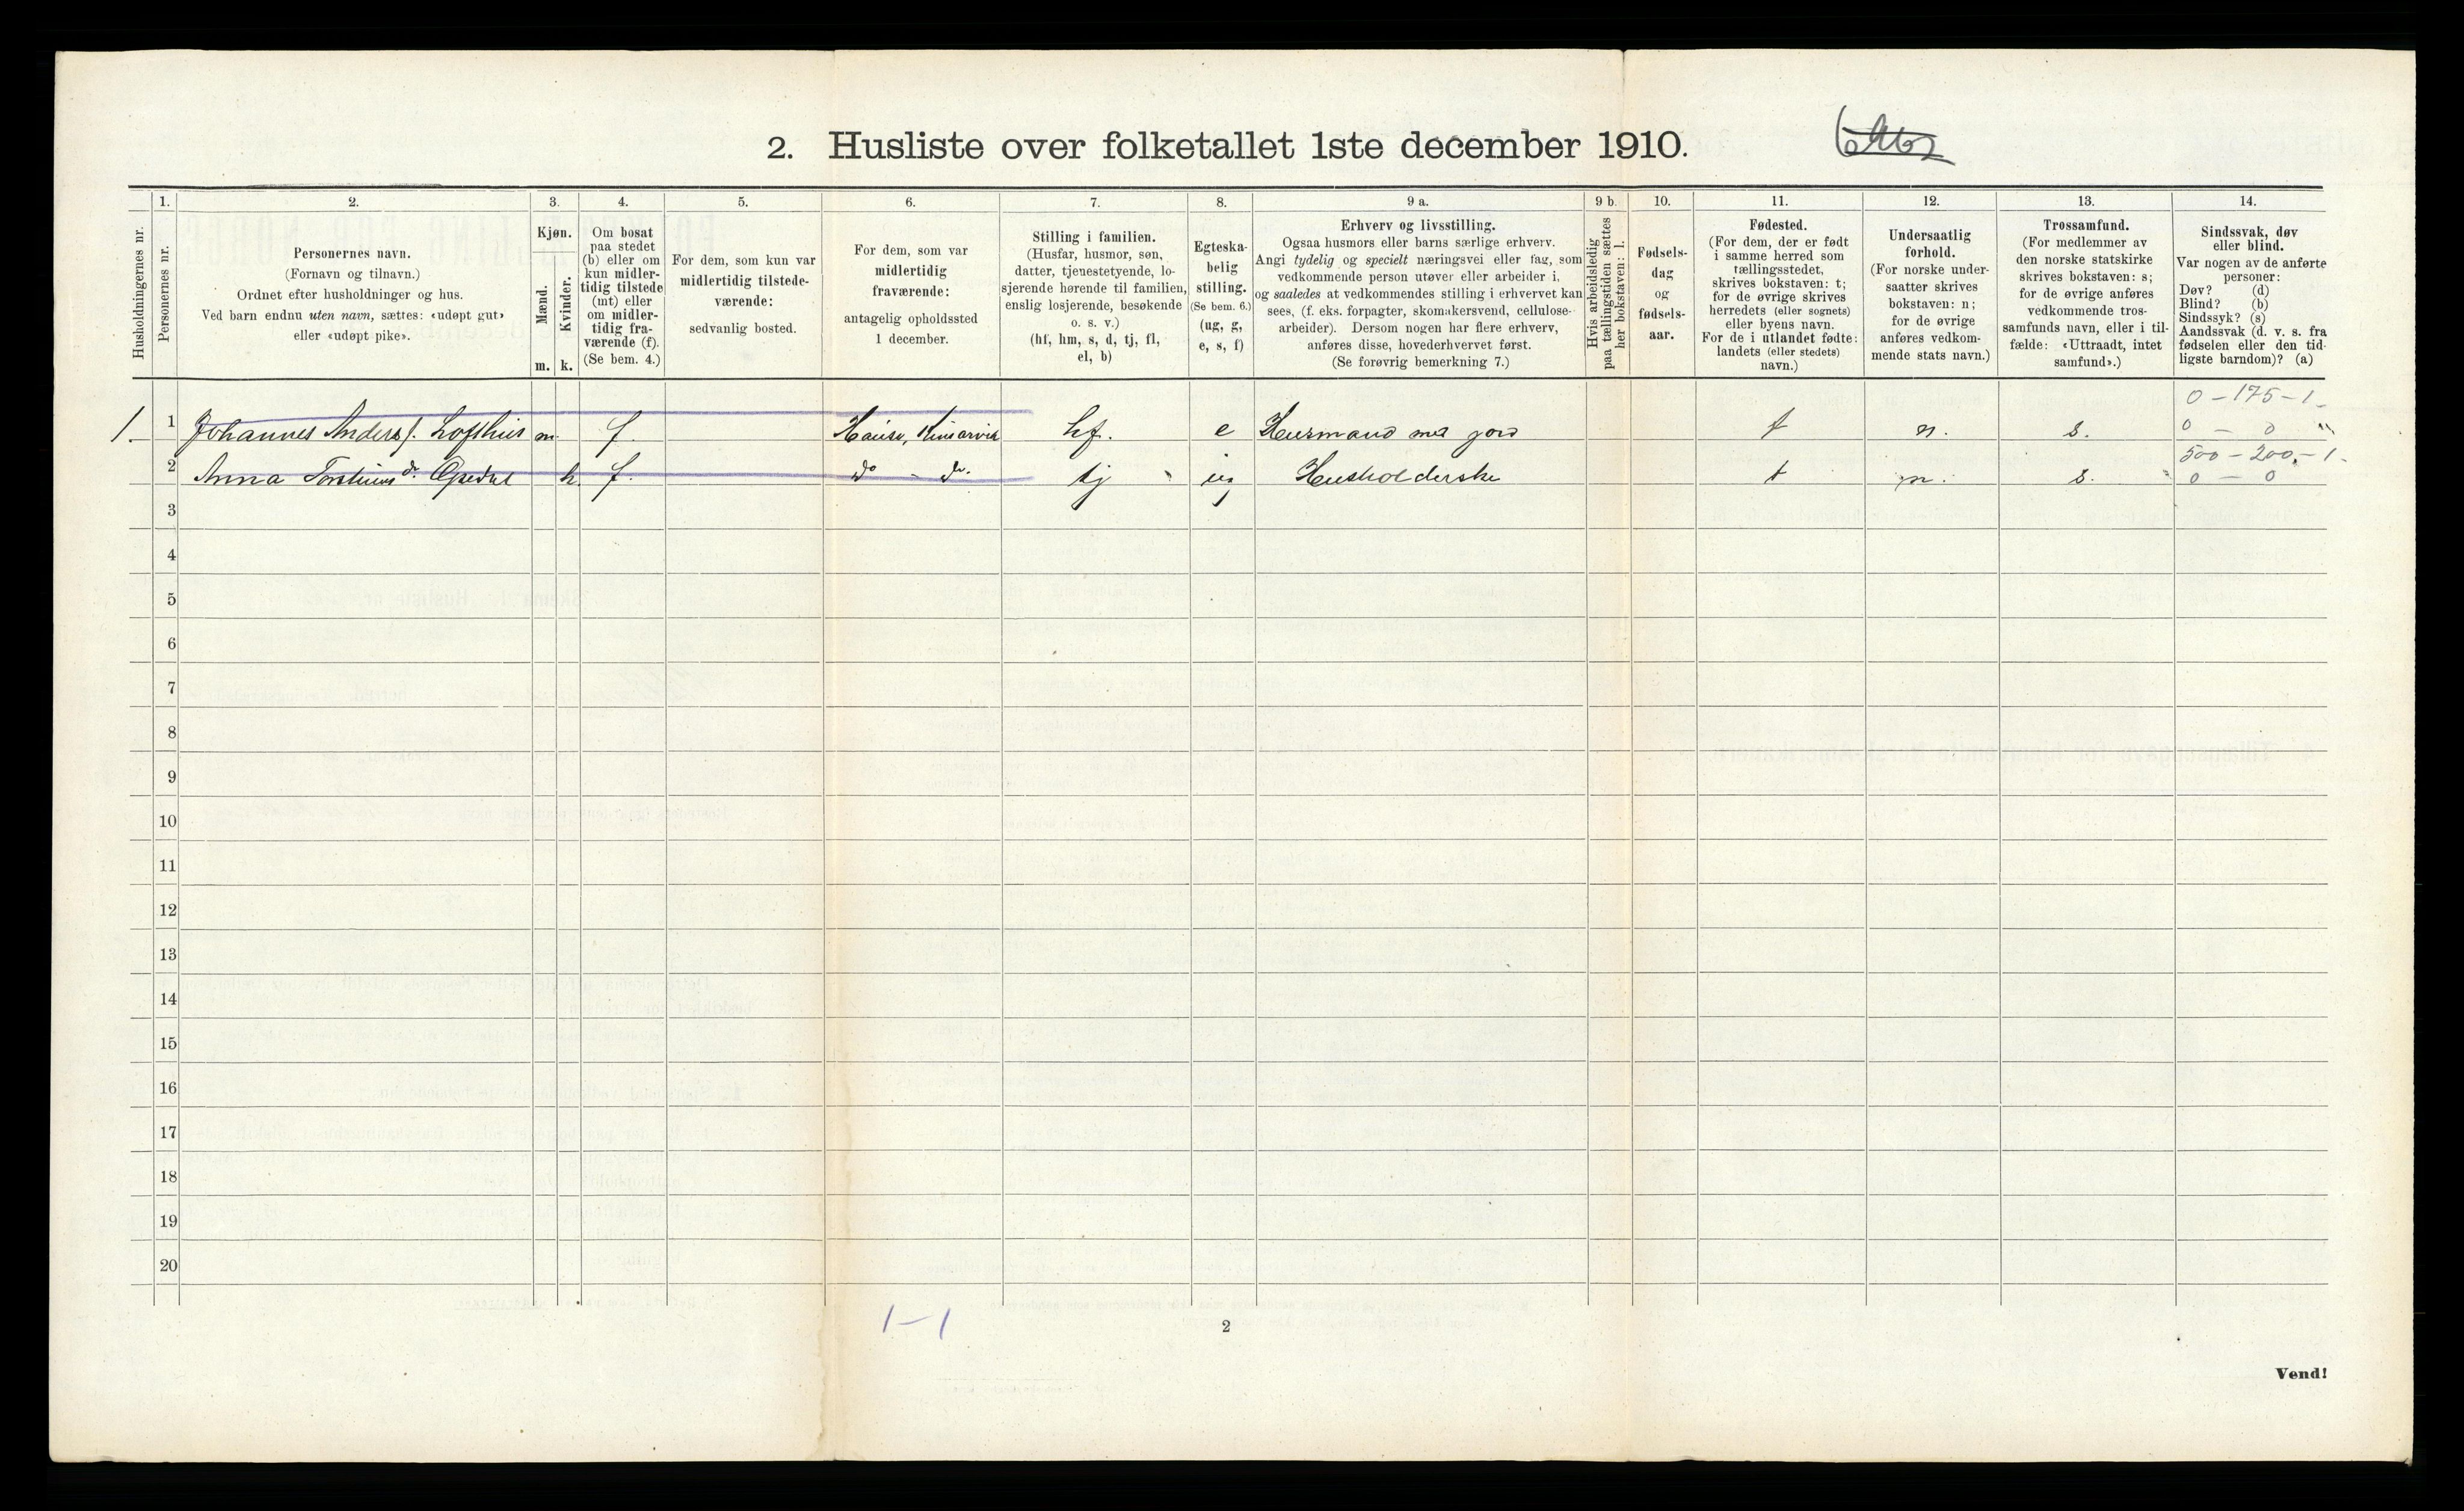 2. Husliste over folketallet 1ste december 1910.
Husholdningernes nr.
1.
Personernes nr.
2.
Personernes navn.
(Fornavn og tilnavn.)
Ordnet efter husholdninger og hus.
Ved barn endnu uten navn, sættes: «udøpt gut»
eller «udøpt pike».
3.
Kjøn.
Mænd.
Kvinder.
m. k.
4.
Om bosat
paa stedet
(b) eller om
kun midler-
tidig tilstede
(mt) eller
om midler-
tidig fra-
værende (f).
(Se bem. 4.)
5.
For dem, som kun var
midlertidig tilstede-
værende:
sedvanlig bosted.
6.
For dem, som var
midlertidig
fraværende:
antagelig opholdssted
1 december.
7.
Stilling i familien.
(Husfar, husmor, søn,
datter, tjenestetyende, lo-
sjerende hørende til familien,
enslig losjerende, besøkende
o. s. v.)
(hf, hm, s, d, tj, fl,
el, b)
8.
Egteska-
belig
stilling.
(Se bem. 6.)
(ug, g,
e, s, f)
9 a.
Erhverv og livsstilling.
Ogsaa husmors eller barns særlige erhverv.
Angi tydelig og specielt næringsvei eller fag, som
vedkommende person utøver eller arbeider i,
og saaledes at vedkommendes stilling i erhvervet kan
sees, (f. eks. forpagter, skomakersvend, cellulose-
arbeider). Dersom nogen har flere erhverv,
anføres disse, hovederhvervet først.
(Se forøvrig bemerkning 7.)
9 b.
Hvis arbeidsledig
paa tællingstiden sættes
her bokstaven: l.
10.
Fødsels-
dag
og
fødsels-
aar.
11.
Fødested.
(For dem, der er født
i samme herred som
tællingsstedet,
skrives bokstaven: t;
for de øvrige skrives
herredets (eller sognets)
eller byens navn.
For de i utlandet fødte:
landets (eller stedets)
navn.)
12.
Undersaatlig
forhold.
(For norske under-
saatter skrives
bokstaven: n;
for de øvrige
anføres vedkom-
mende stats navn.)
13.
Trossamfund.
(For medlemmer av
den norske statskirke
skrives bokstaven: s;
for de øvrige anføres
vedkommende tros-
samfunds navn, eller i til-
fælde: «Uttraadt, intet
samfund».)
14.
Sindssvak, døv
eller blind.
Var nogen av de anførte
personer:
Døv? (d)
Blind? (b)
Sindssyk? (s)
Aandssvak (d. v. s. fra
fødselen eller den tid-
ligste barndom)? (a)
0 - 175 - 1 -
1. 1 Johannes Anders s. Lofthus m. f. Hause, Kinsarvik hf. e Husmand med jord t n. s. 0 - 0 "
500 - 200 - 1 -
2 Anna Torsteins dr. Opedal k. f. do - do. tj ug Husholderske t n. s. 0 - 0
3
4
5
6
7
8
9
10
11
12
13
14
15
16
17
18
19
20
1-1
2
Vend!